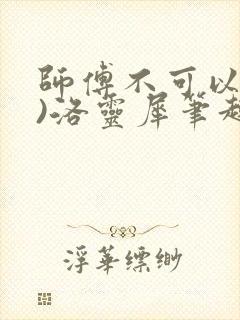 師傅不可以
)洛靈犀筆趣
浮華縹緲